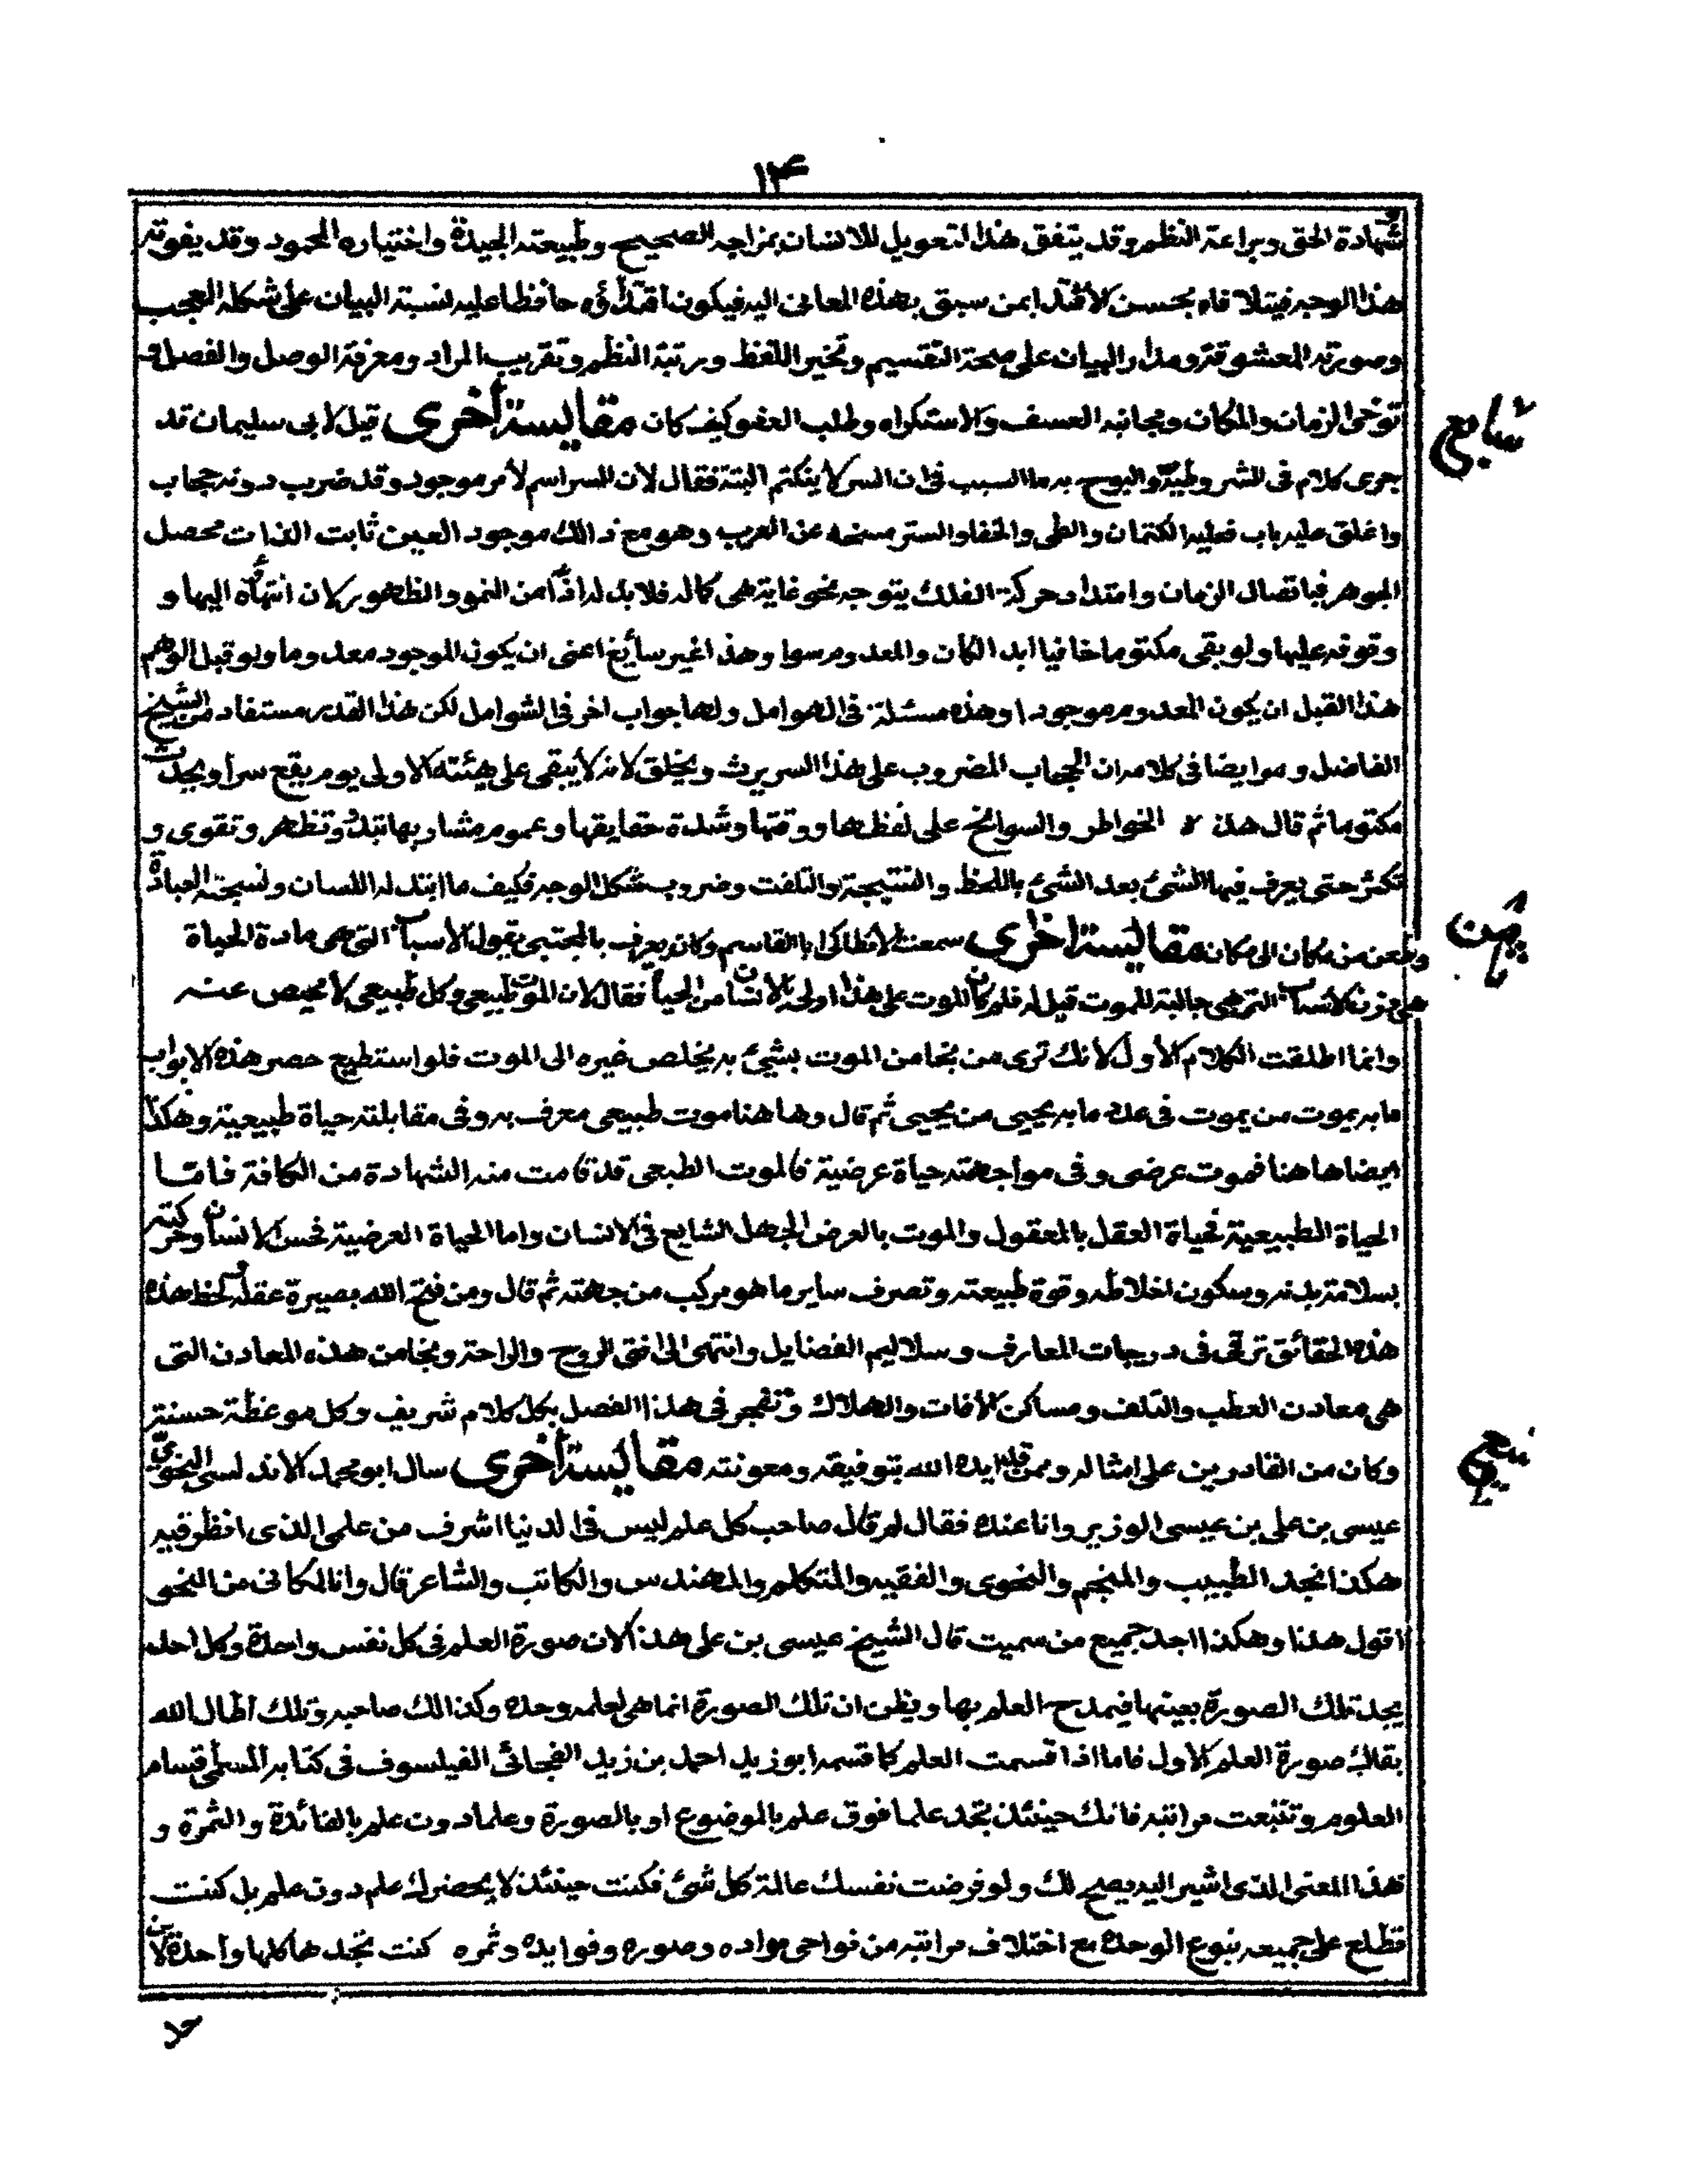 ١٣
شهادة الحق وبراعة النظم وقد يتفق هذا التعويل للانسان بمزاجه الصحيح وطبيعته الجيدة واختياره المحمود وقد يفوته
هذا الوجه فيتلافاه بحسن الاقتدا بمن سبق بهذه المعانى اليه فيكون اقتدأؤه حافظا عليه نسبة البيان على شكله المعجب
وصورته المعشوقة ومدار البيان على صحة التقسيم وتخير اللفظ ورتبة النظم وتقريب المراد ومعرفة الوصل والفصل و
توخى الزمان والمكان ومجانبه العسف والاستكراه وطلب العفو كيف كان مقايسة أخرى قيل لابى سليمان قد
سابع
جرى كلام فى السر وطيه والبوح به ما السبب فى ان السر لا ينكتم البتة فقال لان السر اسم لأمر موجود وقد ضرب دونه حجاب
واغلق عليه باب فعليه الكتمان والطى والخفا والستر مسحه من العرب وهو مع ذالك موجود العين ثابت الذات محصل
الجوهر فباتصال الزمان وامتداد حركة الفلك يتوجه نحو غاية هى كاله فلا بد له اذاً من النمو والظهور لان انتهاه اليها و
وقوفه عليها ولو بقى مكتوما خافيا ابدا لكان والمعدوم سوا وهذا غير سأيغ اعنى ان يكون الموجود معدوما ولو قبل الوهم
هذا القبل ان يكون المعدوم موجودا وهذه مسئلة فى الهوامل ولها جواب اخر فى الشوامل لكن هذا القدر مستفاد من الشيخ
الفاضل ومر ايضا فى كلامه ان الحجاب المضروب على هذا السر يرث ويخلق لانه لا يبقى على هيئته الاولى يوم يقع سرا ويجدث
مكتوما ثم قال هذه الخواطر والسوانح على لفظها ودقتها وشدة حقايقها وعموم مشاربها تبدو وتظهر وتقوى و
تكثر حتى يعرف فيها الشئ بعد الشئ باللحظ والنتيجة والتلفت وضروب شكل الوجه فكيف ما ابتد له اللسان ونسجته العبارة
وظعن من مكان الى مكان مقايسة اخرى سمعت الانطاكى ابا القاسم وكان يعرف بالمجتبى يقول الاسباب التى هى مادة الحياة
ثامن
هى بزنة الاسباب التى هى جالبة للموت قيل له فلم كان الموت على هذا اولى بالانسان من الحياة فقال لان الموت طبيعى وكل طبيعى لا محيص عنه
وانما اطلقت الكلام الأول لانك ترى من نجا من الموت بشئ به يخلص غيره الى الموت فلو استطيع حصر هذه الابواب
ما به يموت من يموت فى عدد ما به يحيى من يحيى ثم قال وهاهنا موت طبيعى معرف به وفى مقابلته حياة طبيعية وهكذا
ايضا هاهنا فموت عرضى وفى مواجهته حياة عرضية فالموت الطبعى قد قامت منه الشهادة من الكافة فاما
الحياة الطبيعية فحياة العقل بالمعقول والموت بالعرض الجهل الشايع فى الانسان واما الحياة العرضية فحس الانسان وحركته
بسلامة بدنه وسكون اخلاطه وقوة طبيعته وتصرف ساير ما هو مركب من جهته ثم قال ومن فتح الله بصيرة عقله لحظ هذه
هذه الحقائق ترقى فى درجات المعارف وسلاليم الفضايل وانتهى الى افق الروح والراحة ونجا من هذه المعادن التى
هى معادن العطب والتلف ومساكن الأفات والهلاك وتفجر فى هذا الفصل بكل كلام شريف وكل موعظة حسنة
وكان من القادرين على امثاله وممن قلد ايده الله بتوفيقه ومعونته مقايسة أخرى سال ابو محمد الاندلسى النحوى
تاسع
عيسى بن على بن عيسى الوزير وانا عنده فقال لم قال صاحب كل علم ليس فى الدنيا اشرف من علمى الذى انظر فيه
هكذا نجد الطبيب والمنجم والنحوى والفقيه والمتكلم والمهندس والكاتب والشاعر قال وانا لمكانى من النحو
اقول هذا وهكذا اجد جميع من سميت قال الشيخ عيسى بن على هذا لان صورة العلم فى كل نفس واحدة وكل احد
يجد تلك الصورة بعينها فيمدح العلم بها ويظن ان تلك الصورة انما هى لعلمه وحده وكذالك صاحبه وتلك اطال الله
بقاك صورة العلم الاول فاما اذا قسمت العلم كما قسمه ابو زيد احمد بن زيد الفيلسوف فى كتابه المسمى اقسام
العلوم وتتبعت مراتبه فانك حينئذ تجد علما فوق علم بالموضوع او بالصورة وعلما دون علم بالفائدة والثمرة و
هذا المعنى الذى اشير اليه يصح لك ولو فرضت نفسك عالمة كل شئ فكنت حينئذ لا يحضرك علم دون علم بل كنت
تطلع على جميعه بنوع الوحدة مع اختلاف مراتبه من نواحى مواده وصوره وفوايده وثمره كنت تجدها كلها واحدة لان
حد